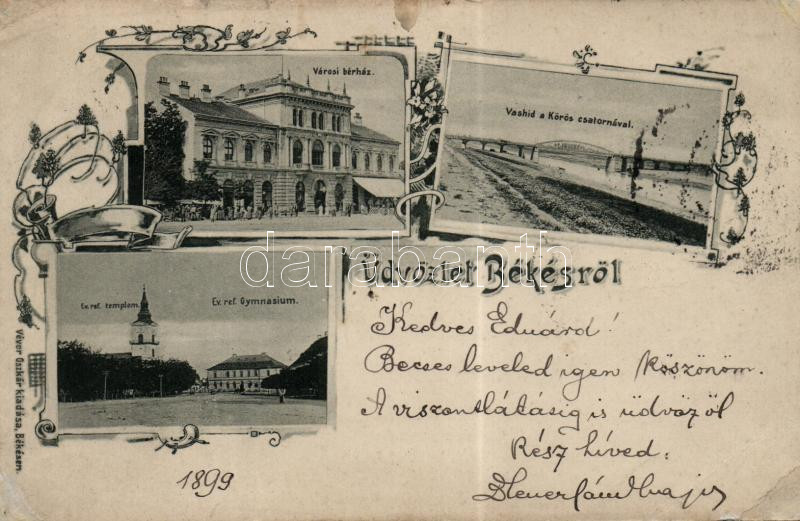 Városi bérház.
Vashid a Körös csatornával.
Ev. ref. templom.
Ev. ref. Gymnasium.
Üdvözlet Békésről
Kedves Eduárd!
Becses leveled igen köszönöm.
A viszontlátásig is üdvözöl
Rész híved:
1899
Véver Oszkár kiadása, Békésen.
darabanth